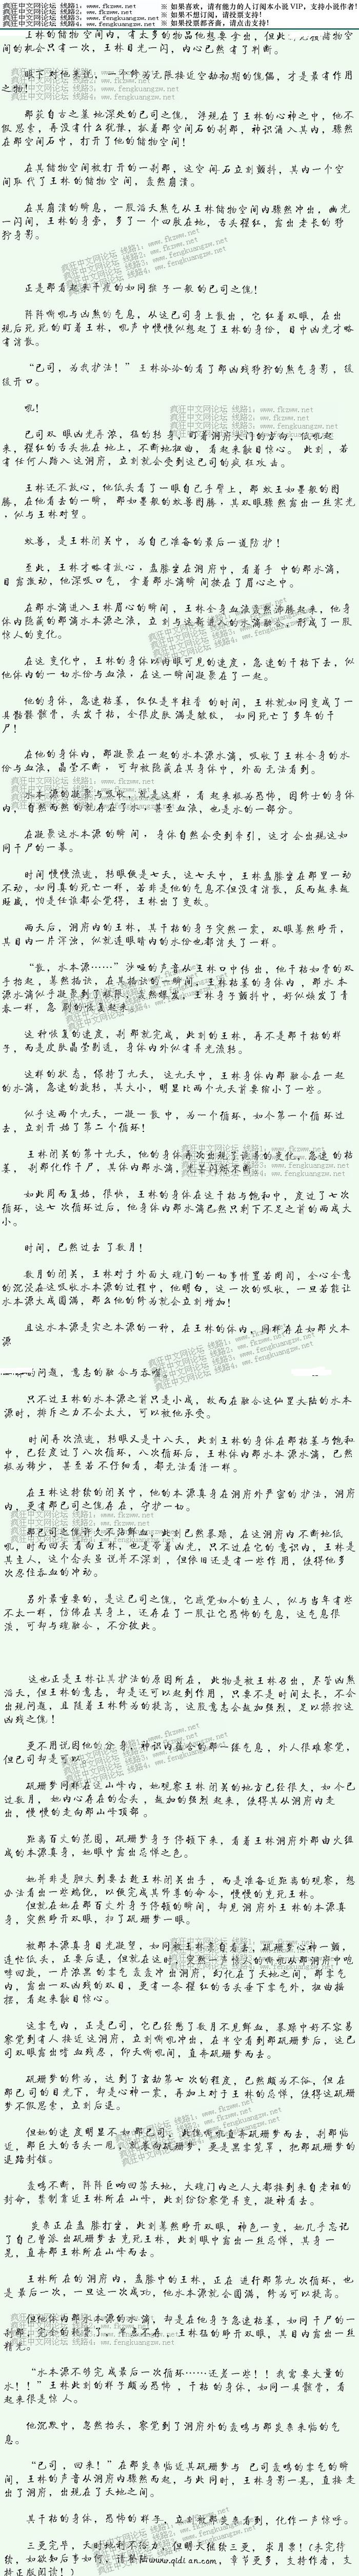 疯狂中文网论坛 线路1：www.fkzww.net
疯狂中文网论坛 线路2：www.fkzw.net
疯狂中文网论坛 线路3：www.fengkuangzw.net
疯狂中文网论坛 线路4：www.fengkuangzw.net
※ 如果喜欢，请有能力的人订阅本小说VIP，支持小说作者！
※ 如果不想订阅，请投票支持！
※ 如果投票都吝啬，请点击支持！
王林的储物空间内，有太多的物品他想要拿出，但此
储物空
间的机会只有一次，王林目光一闪，内心已然有了判断。
眼下对他来说，一个修为无限接近空劫初期的傀儡，才是最有作用
之物！
那获自古之墓地深处的已司之傀，浮现在了王林的心神之中，他不
假思索，再没有什么犹豫，抓着那空间石的刹那，神识涌入其内，骤然
在那空间石中，打开了他的储物空间！
在其储物空间被打开的一刹那，这空间石立刻颤抖，其内一个空
间取代了王林的储物空间，轰然崩溃。
在其崩溃的瞬息，一股滔天煞气从王林储物空间内骤然冲出，幽光
一闪间，王林的身旁，多了一个四肢在地，舌头猩红，露出老长的狰
狞身影。
正是那看起来干瘦的如同猴子一般的已司之傀！
阵阵嘶吼与凶煞的气息，从这已司身上散出，它红着双眼，在出
现后死死的盯着王林，吼声中慢慢似想起了王林的身份，目中凶光才略
有消散。
“已司，为我护法！”王林冷冷的看了那凶残狰狞的煞气身影，缓
缓开口。
吼！
已司双眼凶光再浓，猛的转身，盯着洞府大门的方向，低吼起
来，猩红的舌头拖在地上，不断地扭曲，看起来触目惊心。此刻，若
有任何人踏入这洞府，立刻就会受到这已司的疯狂攻击。
王林还不放心，他低头看了一眼自己手臂上，那蚊王如墨般的图
腾，在他看去的一瞬，那如墨般的蚊兽图腾，其双眼骤然露出一丝寒光
，似与王林对望。
蚊兽，是王林闭关中，为自己准备的最后一道防护！
至此，王林才略有放心，盘膝坐在洞府中，看着手中的那水滴，
目露激动，他深吸口气，拿着那水滴瞬间按在了眉心之中。
在那水滴进入王林眉心的瞬间，王林全身血液轰然沸腾起来，他身
体内隐藏的那滴水本源之液，立刻与这新进入的水滴融合，形成了一股
惊人的变化。
在这变化中，王林的身体以肉眼可见的速度，急速的干枯下去，似
他体内的一切水份与血液，在这一瞬间凝聚在了一起。
他的身体，急速枯萎，仅仅是半柱香的时间，王林就如同变成了一
具骷髅骸骨，头发干枯，全很皮肤满是皱纹，如同死亡了多年的干
尸！
在他的身体内，那凝聚在一起的水本源水滴，吸收了王林全身的水
份与血液，晶莹不断，可却被隐藏在其身体中，外面无法看到。
水本源的凝聚与吸收，就是这样，看起来极为恐怖，因修士的身体
内，自然而然的就存在了水，甚至血液，也是水的一部分。
在凝聚这水本源的瞬间，身体自然会受到牵引，这才会出现这如
同干尸的一幕。
时间慢慢流逝，转眼便是七天，这七天中，王林盘膝坐在那里一动
不动，如同真的死亡一样，若非是他的气息不但没有消散，反而越来越
旺盛，怕是任谁都会觉得，王林出了变故。
两天后，洞府内的王林，其干枯的身子突然一震，双眼蓦然睁开，
其目内一片浑浊，似就连眼睛内的水份也都消失了一样。
“散，水本源……”沙哑的声音从王林口中传出，他干枯如骨的双
手抬起，蓦然掐诀，在其掐诀的一瞬间，王林枯萎的身体内，那水本
源水滴似乎凝聚到了极限，轰然爆发，王林身子颤抖中，好似焕发了青
春一样，急剧的恢复起来。
这种恢复的速度，刹那就完成，此刻的王林，再不是那干枯的样
子，而是皮肤晶莹剔透，身体内外似有异光流转。
这样的状态，保持了九天，这九天中，王林身体内那融合在一起
的水滴，急速的旋转，其大小，明显比两个九天前要缩小了一些。
似乎这两个九天，一凝一散中，为一个循环，如今第一个循环过
去，立刻开始了第二个循环！
王林闭关的第十九天，他的身体再次出现了诡异的变化，急速的枯
萎，刹那化作干尸，其体内那水滴，光芒闪烁不断。
如此周而复始，很快，王林的身体在这干枯与饱和中，度过了七次
循环，这七次循环过后，他身体内那水滴已然只剩下不足之前的两成大
小。
时间，已然过去了数月！
数月的闭关，王林对于外面大魂门的一切事情置若罔闻，全心全意
的沉浸在这吸收水本源的过程中，他明白，这一次的吸收，一旦若能让
水本源大成圆满，那么他的修为就会立刻增加！
且这水本源是实之本源的一种，在王林的体内，同样存在如那火本
源
的问题，意志的融合与本源。
只不过王林的水本源之前只是小成，故而在融合这仙罡大陆的水本
源时，排斥之力不会太大，可以被他承受。
时间再次流逝，转眼又是十八天，此刻王林的身体在那枯萎与饱和
中，已经度过了八次循环，八次循环后，王林体内那水本源水滴，已然
极为稀少，甚至若不仔细看，都无法看清一样。
在王林这持续的闭关中，他的本源真身在洞府外严密的护法，洞府
内，更有那已司之傀存在，守护一切。
那已司之傀许久不沾鲜血，此刻已然暴躁，在这洞府内不断地低
吼，时而回头看向王林，也是带着凶光，只不过在它的意识内，王林是
其主人，这个念头虽说并不深刻，但依旧还是有一些作用，使得他多
次忍住嗜血的冲动。
另外最重要的，是这已司之傀，它感觉如今的主人，似与当年有些
不太一样，仿佛在其身上，还存在了一股让它恐怖的气息，这气息很
淡，可却与魂融合，不分彼此。
这也正是王林让其护法的原因所在，此物是被王林召出，尽管凶煞
滔天，但王林的意志，却是还可以起到作用，只要不是时间太长，不会
出现问题，且随着王林修为的提高，这股意志会越加强烈，足以操控这
凶残之傀！
更不用说因他的分身，神识内蕴含的那一缕气息，外人很难察觉，
但已司却是可以。
砥珊梦同样在这山峰内，她观察王林闭关的地方已经很久，如今已
过数月，她内心存在的念头，越加的强烈起来，使得其从洞府内走
出，慢慢的走向那山峰顶部。
距离百丈的范围，砥珊梦身子停顿下来，看着王林洞府外那由火组
成的本源真身，她眼中露出忌惮之色。
她并非是胆大到要去趁王林闭关出手，而是准备近距离的观察，想
办法看出一些端倪，以便完成其师尊的命令，慢慢的克死王林。
但就在她在那百丈外身子停顿的瞬间，却见洞府外王林的本源真
身，突然睁开双眼，扫了砥珊梦一眼。
被那本源真身目光凝望，如同被王林亲自看去，砥珊梦心神一颤，
连忙低头，正要后退，但就在这时，突然一声惊人的嘶吼从那洞府中咆
哮回旋，一片浓黑的雾气轰轰冲出洞府，幻化在了天地之间，那雾气
内，露出一双凶残的双目，更有一条猩红的舌头垂下雾气外，扭曲摇
摆，看起来触目惊心。
这雾气内，正是已司，它已经憋了数月不见鲜血，暴躁中好不容易
察觉到有人接近这洞府，立刻嘶吼冲出，在半空看到那砥珊梦后，这已
司双眼露出嗜血残忍，仰天嘶吼间，直奔砥珊梦而去。
砥珊梦的修为，达到了玄劫第七次的程度，已然颇为不俗，但在
那已司的目光下，却是心神一震，再加上对于王林的忌惮，使得这砥珊
梦不假思索，立刻后退。
但她的速度明显不如那已司，此傀嘶吼直奔砥珊梦而去，刹那临
近，那巨大的舌头一甩，就卷向砥珊梦，更是黑雾笼罩，把那砥珊梦的
退路封锁。
轰鸣不断，阵阵巨响回荡天地，大魂门内之人大都接到来自老祖的
封命，禁制靠近王林所在山峰，此刻纷纷察觉异变，凝神看去。
炎亲正在盘膝打坐，此刻蓦然睁开双眼，神色一变，她几乎忘记
了自己曾派出砥珊梦去克死王林，此刻眼中露出一丝忌惮，其身一
晃，直奔那王林所在山峰而去。
王林所在的洞府内，盘膝中的王林，正在进行那第九次循环，也
是最后一次，一旦这一次成功，他水本源就会圆满，修为可以提高。
但他体内那水本源的水滴，却是在他身子急速枯萎，如同干尸的一
刹那，完全的耗尽了，半点不存，王林猛的睁开双眼，其目内露出一丝
精光。
“水本源不够完成最后一次循环……还差一些！！我需要大量的
水！！”王林此刻的样子颇为恐怖，干枯的身体，如同一具骸骨，看
起来很是惊人。
他沉默中，忽然抬头，察觉到了洞府外的轰鸣与那炎亲来临的气
息。
“已司，回来！”在那炎亲临近其砥珊梦与已司轰鸣的雾气的瞬
间，王林的声音从洞府内骤然而起，与此同时，王林身影一晃，直接走
出了洞府，出现在了天地之间。
其干枯的身体，恐怖的样子，立刻被那炎亲看到，化作一声惊呼。
三更完毕，天时地利不给力，但明天继续三更，求月票！(未完待
续，如欲知后事如何，请登陆www.qidian.com，章节更多，支持作者，支
持正版阅读！)